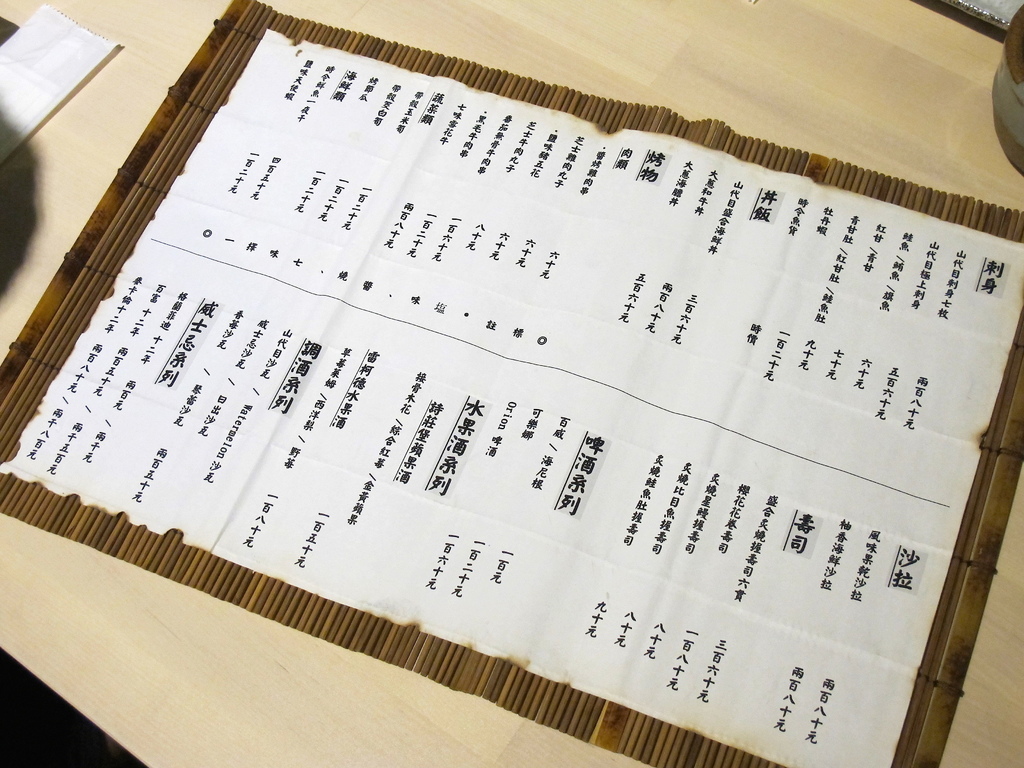 刺身
山代目刺身七枚 兩百八十元
山代目極上刺身 五百六十元
鮭魚/鮪魚/旗魚 六十元
紅甘/青甘 七十元
青甘肚/紅甘肚/鮭魚肚 九十元
牡丹蝦 一百二十元
時令魚貨 時價
丼飯
山代目盛合海鮮丼 三百六十元
大蔥和牛丼 兩百八十元
大蔥海膽丼 五百六十元
烤物
肉類
·醬烤雞肉串 六十元
芝士雞肉丸子 六十元
·鹽味豬五花 八十元
芝士牛肉丸子
番茄無骨牛肉串 一百六十元
·黑毛牛肉串 一百二十元
七味雪花牛 兩百八十元
蔬菜類
帶殼玉米筍 一百二十元
帶殼茭白筍 一百二十元
烤節瓜 一百二十元
海鮮類
時令鮮魚一夜干 四百五十元
鹽味天使蝦 一百二十元
◎標註•塩味、醬燒、七味擇一◎
沙拉
風味果乾沙拉 兩百八十元
柚香海鮮沙拉 兩百八十元
壽司
盛合炙燒握壽司六貫 三百六十元
櫻花花卷壽司 一百八十元
炙燒星鰻握壽司 八十元
炙燒比目魚握壽司 八十元
炙燒鮭魚肚握壽司 九十元
啤酒系列
百威/海尼根 一百元
可樂娜 一百二十元
Orion 啤酒 一百六十元
水果酒系列
詩莊堡蘋果酒
接骨木花/綜合紅莓/金黃蘋果
雷柯德水果酒 一百五十元
草莓萊姆/西洋梨/野莓 一百八十元
調酒系列
山代目沙瓦/Watermelon 沙瓦
威士忌沙瓦/日出沙瓦
香草沙瓦/琴富沙瓦 兩百五十元
威士忌系列
格蘭菲迪 十二年 兩百元/兩千元
百富 十二年 兩百五十元/兩千五百元
麥卡倫十二年 兩百八十元/兩千八百元